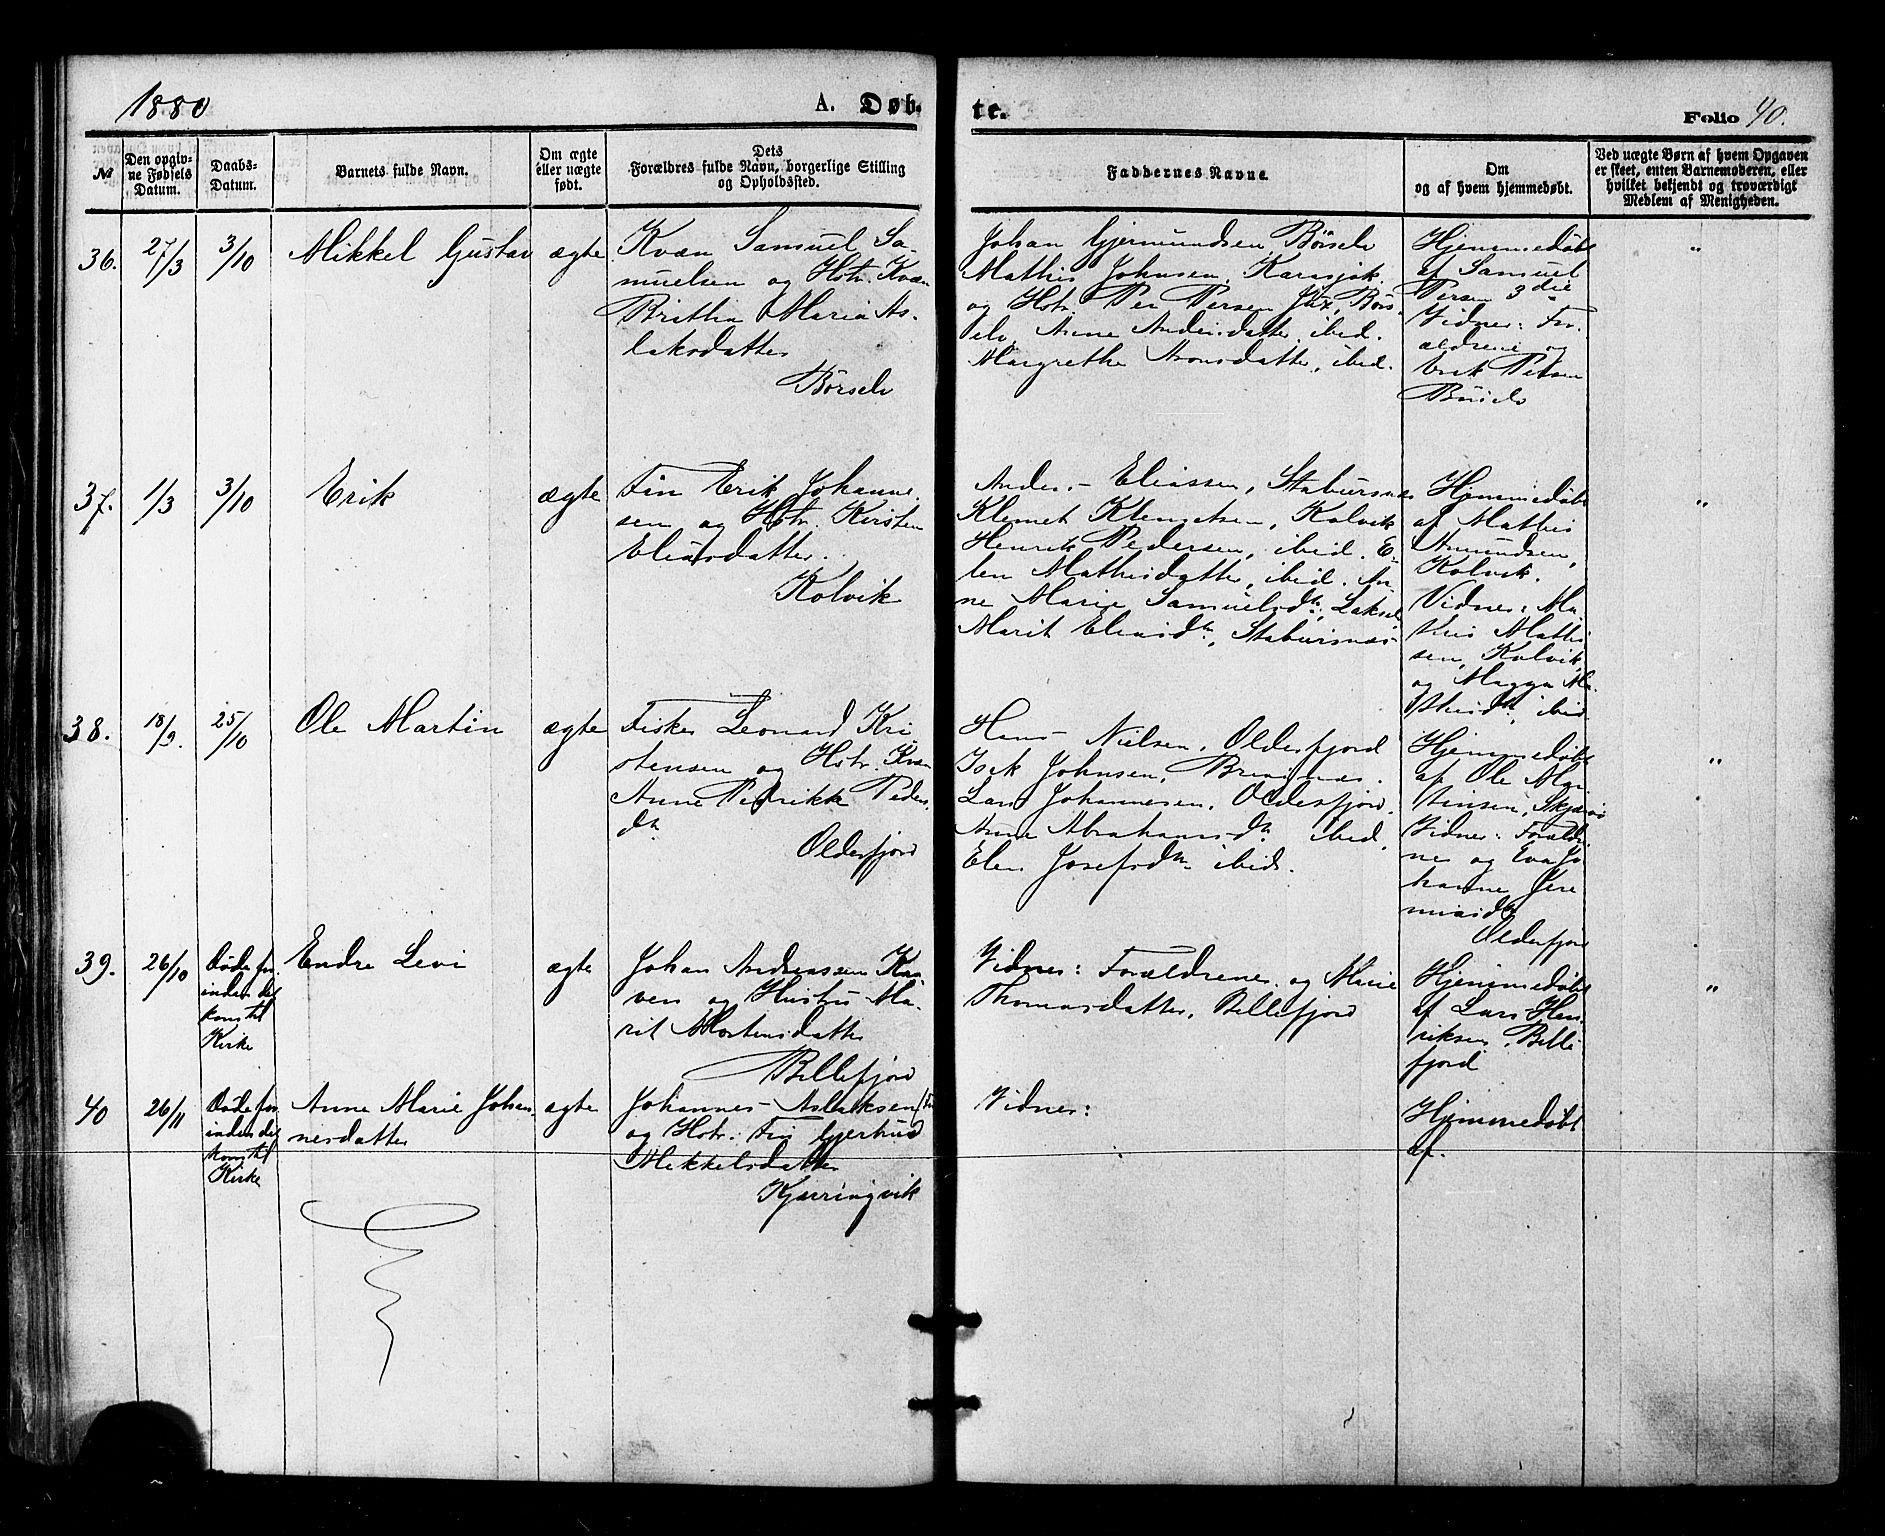 1880
A. Døb-
te.
Folio 40.
№
Den opgiv-
ne Fødsels
Datum.
Daabs-
Datum.
Barnets fulde Navn.
Om ægte
eller uægte
født.
Dets
Forældres fulde Navn, borgerlige Stilling
og Opholdssted.
Faddernes Navne.
Om
og af hvem hjemmedøbt.
Ved uægte Børn af hvem Opgaven
er skeet, enten Barnemoderen, eller
hvilket bekjendt og troværdigt
Medlem af Menigheden.
36.
27/3
3/10
Mikkel Gustav
ægte
Kvæn Samuel Sa-
muelsen og Hstr. Kvæn
Britha Maria As-
laksdatter
Børselv
Johan Gjermundsen, Børselv
Mathis Johnsen, Karasjok
og Hstr. Per Persen Jux, Børs-
elv, Anne Andersdatter ibid.
Margrethe Aronsdatter, ibid.
Hjemmedøbt
af Samuel
Persen 3die
Vidner: For-
ældrene og
Erik Petersen
Børselv
"
37.
1/3
3/10
Erik
ægte
Fin Erik Johanne-
sen og Hstr. Kirsten
Eliasdatter.
Kolvik
Anders Eliassen, Stabursnes
Klemet Klemetsen, Kolvik
Henrik Pedersen, ibid. E-
len Mathisdatter, ibid. An-
ne Marie Samuelsdtr, Lakselv
Marit Eliasdtr, Stabursnes
Hjemmedøbt
af Mathis
Amundsen,
Kolvik.
Vidner: Ma-
this Mathi-
sen, Kolvik
og Magga Ma-
thisdtr, ibid
"
38.
18/9.
25/10
Ole Martin
ægte
Fisker Leonard Kri
stensen og Hstr. Kvæn
Anne Pedrikke Peders-
dtr
Olderfjord
Hans Nielsen, Olderfjord
Isak Johnsen,
Lars Johannesen, Olderfjord.
Anne Abrahamsdtr ibid,
Elen Josefsdtr ibid.
Hjemmedøbt
af Ole Mar-
tinsen, Skjærvø
Vidner: Forældre
ne og Eva Jo-
hanne Jere
miasdtr
Olderfjord
"
39.
26/10
Døde for-
inden det
kom til
Kirke
Endre Levi
ægte
Johan Andreassen Kaa
ven og Hustru Ma-
rit Mortensdatter
Billefjord
Vidner: Forældrene og Marie
Thomasdatter, Billefjord
Hjemmedøbt
af Lars Hen-
riksen, Bille
fjord
"
40
26/11
Døde for-
inden det
kom til
Kirke
Anne Marie Johan-
nesdatter
ægte
Johannes Aslaksen (Fin
og Hstr. Fin Gjertrud
Mikkelsdatter
Kjærringvik
Vidner:
Hjemmedøbt
af.